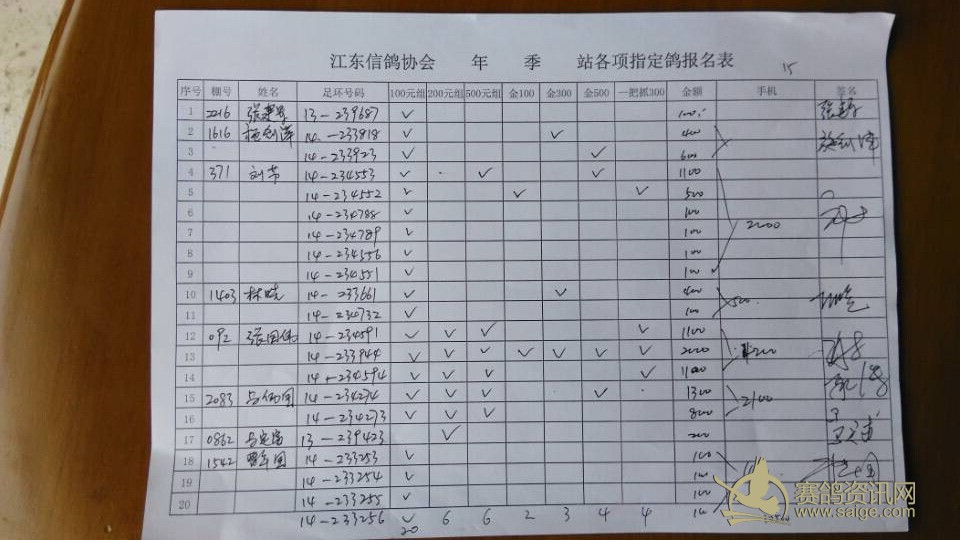 江东信鸽协会 年 季 站各项指定鸽报名表 15
序号 棚号 姓名 足环号码 100元组 200元组 500元组 金100 金300 金500 一把抓300 金额 手机 签名
1 2216 13-239687 ✓
2 1616 14-233818 ✓ ✓ 400
3 14-233923 ✓ ✓ 600
4 371 14-234553 ✓ ✓ ✓ 1100
5 14-234552 ✓ ✓ ✓ 500
6 14-234788 ✓ 100
7 14-234789 ✓ 100
8 14-234556 ✓ 100
9 14-234551 ✓ 100
10 1403 林晓 14-233661 ✓ ✓ 400
11 14-230732 ✓ 100
12 092 张国伟 14-234591 ✓ ✓ ✓ ✓ 1100
13 14-233944 ✓ ✓ ✓ ✓ ✓ ✓ ✓ 2000
14 14-234594 ✓ ✓ ✓ ✓ 1100
15 2083 14-234274 ✓ ✓ ✓ ✓ 1300 2100
16 14-234273 ✓ ✓ ✓ 800
17 0862 13-239423 ✓ 200
18 1542 14-233253 ✓ 100
19 14-233254 ✓ 100
20 14-233255 ✓ 100
14-233256 ✓ 20 6 6 2 3 4 4
赛鸽资讯网
www.saige.com